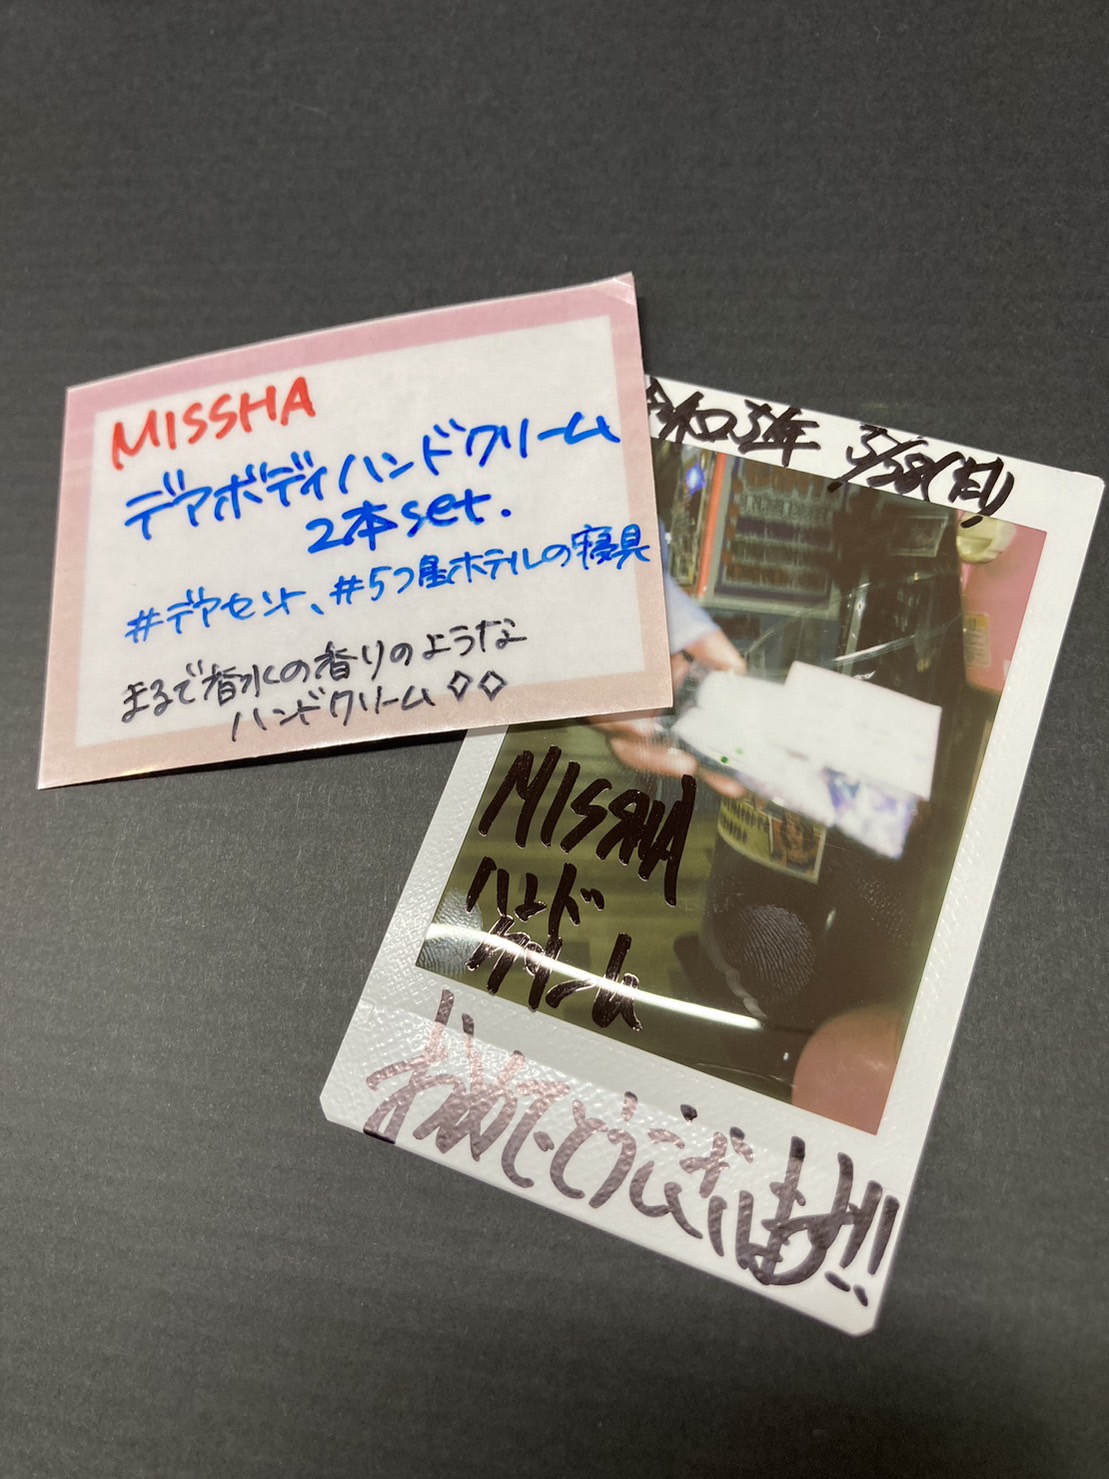 MISSHA
デアボディハンドクリーム
2本set.
#デアセント、#5つ星ホテルの寝具
まるで香水の香りのような
ハンドクリーム◇◇
令和3年
MISSHA
ハンド
クリーム
おめでとうございます!!